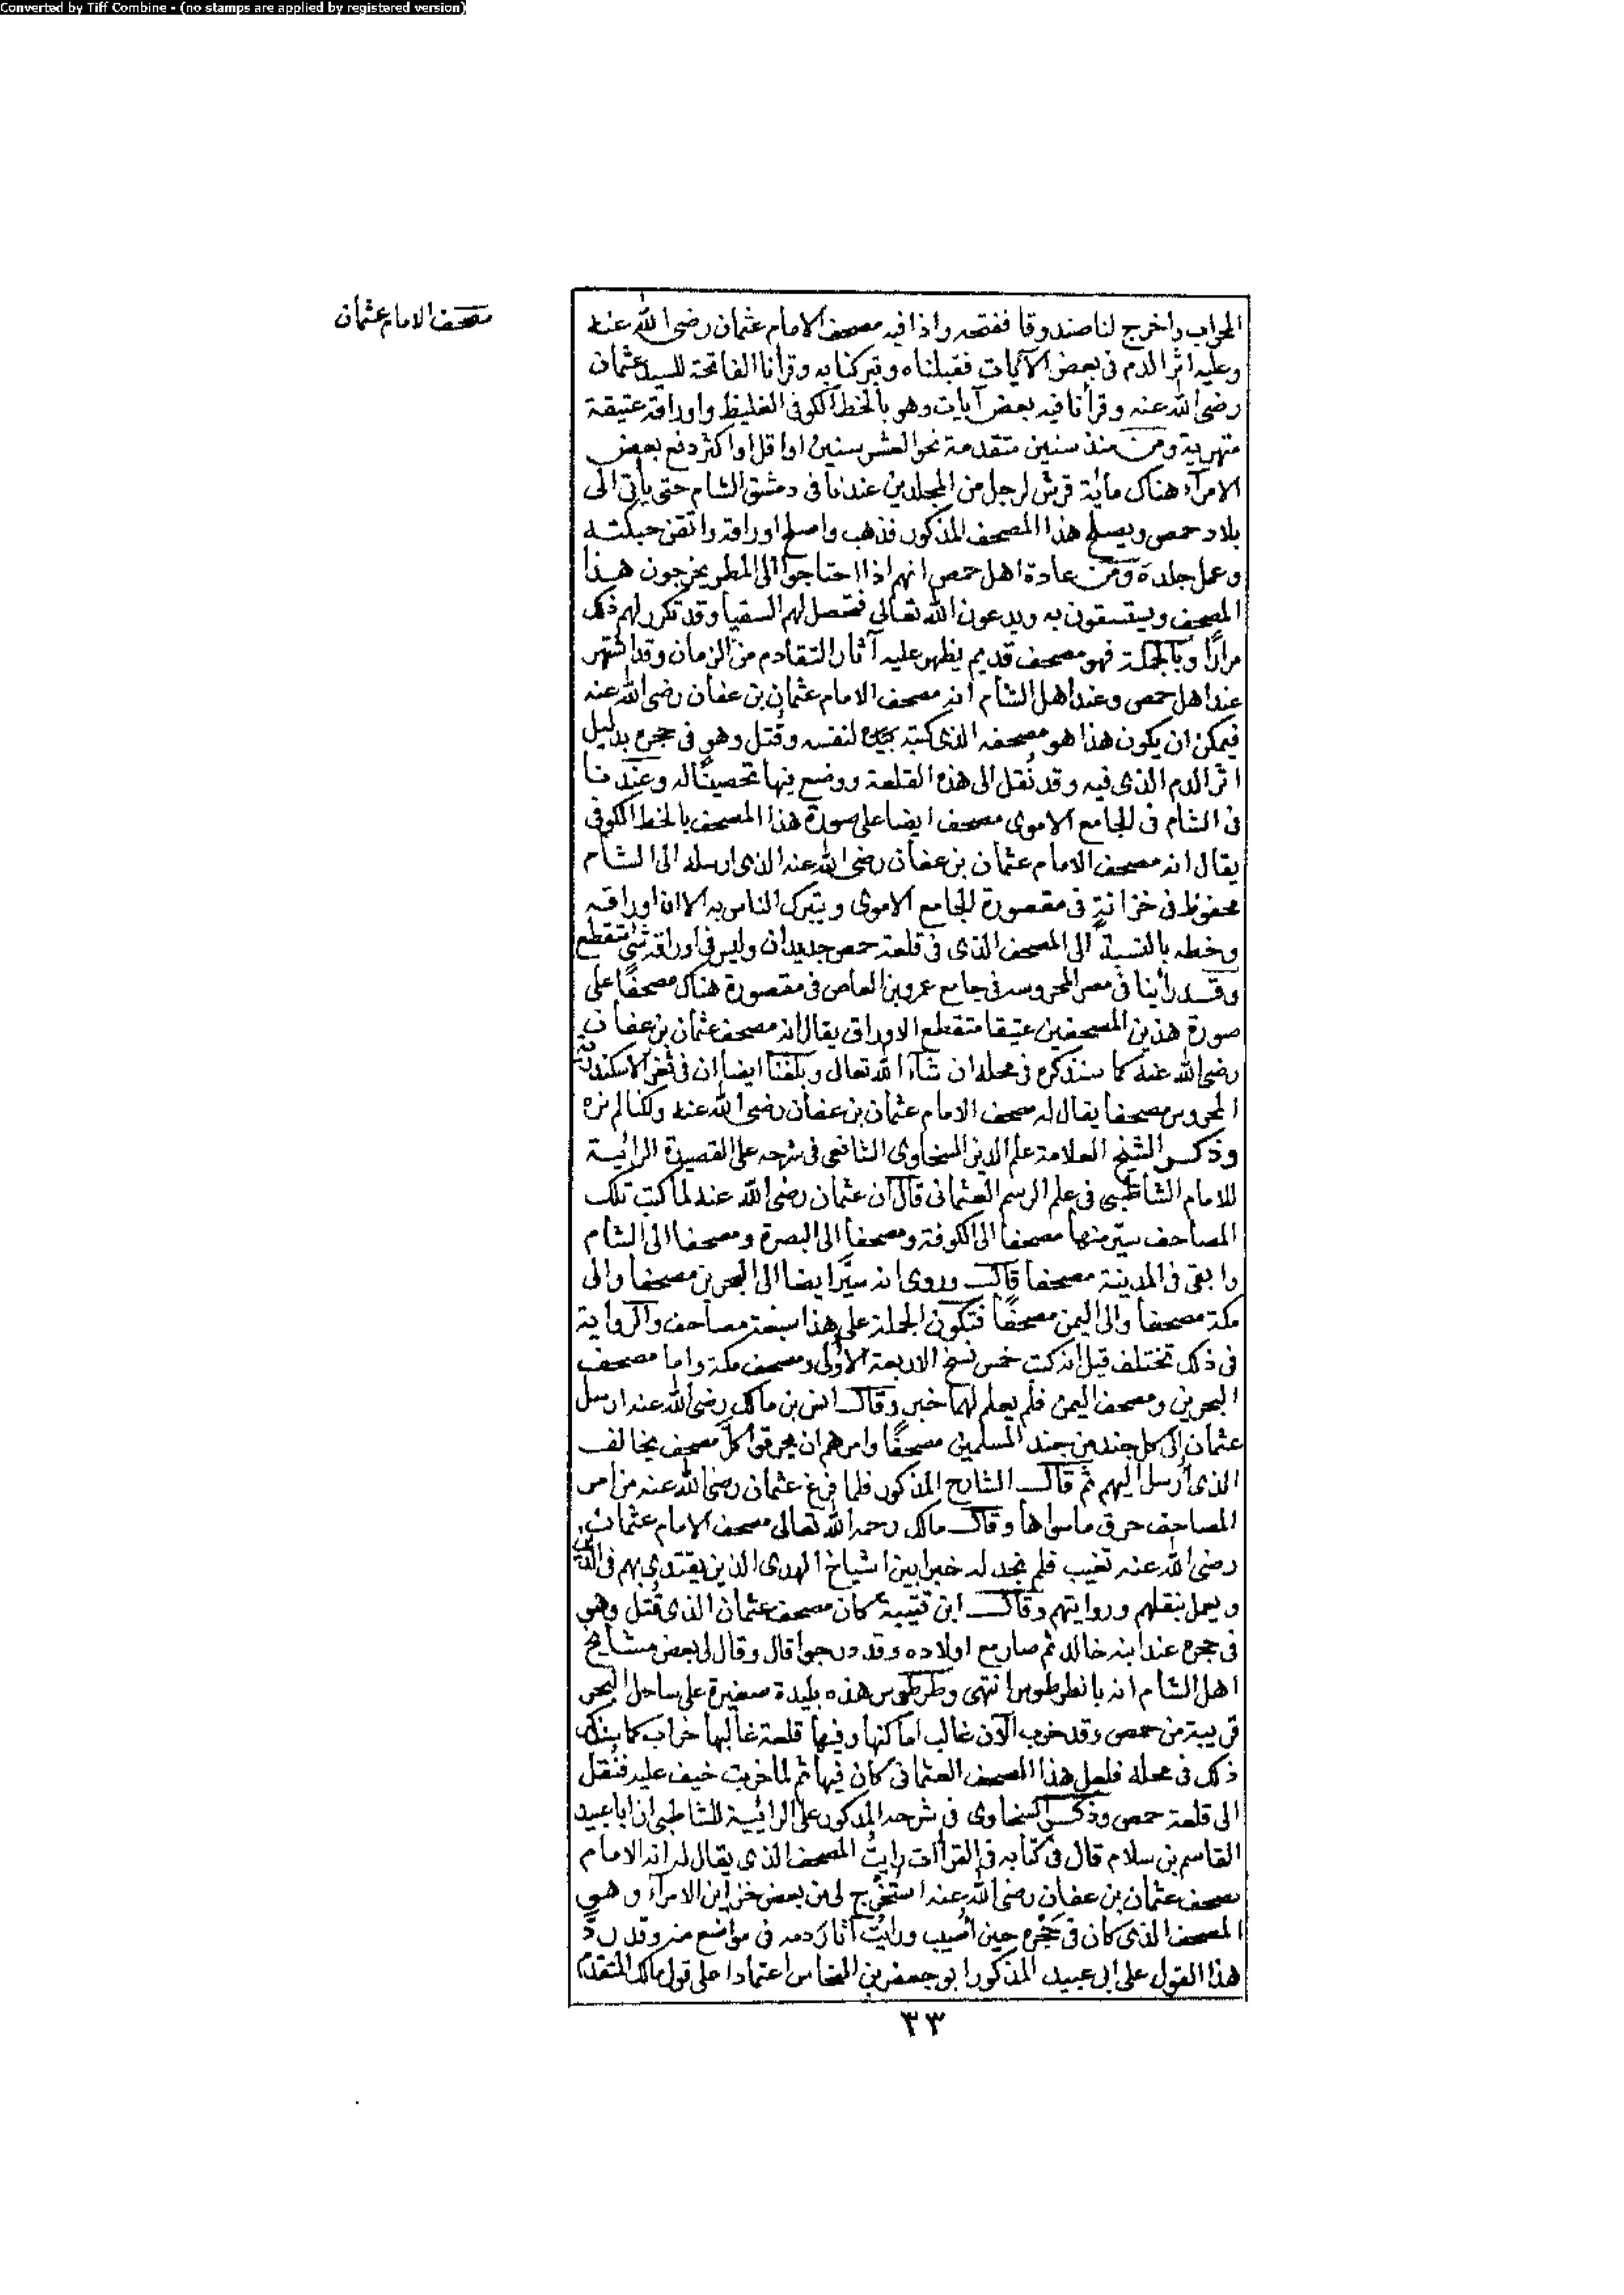 Converted by Tiff Combine - (no stamps are applied by registered version)
مصحف الامام عثمان
المحراب واخرج لنا صندوقا ففتحه واذا فيه مصحف الامام عثمان رضى الله عنه
وعليه اثر الدم فى بعض الآيات فقبلناه وتبركنا به وقرأنا الفاتحة للسيد عثمان
رضى الله عنه وقرأنا فيه بعض آيات وهو بالخط الكوفى الغليظ واوراقه عتيقة
متهرية ومن منذ سنين متقدمة نحو العشر سنين او اقل او اكثر دفع بعض
الامرآء هناك مائة قرش لرجل من المجلدين عندنا فى دمشق الشام حتى يأتى الى
بلاد حمص ويصلح هذا المصحف المذكور فذهب واصلح اوراقه واتقن حبكته
وعمل جلده ومن عادة اهل حمص انهم اذا احتاجوا الى المطر يخرجون هذا
المصحف ويستسقون به ويدعون الله تعالى فتحصل لهم السقيا وقد تكرر لهم ذلك
مرارًا وبالجملة فهو مصحف قديم يظهر عليه آثار التقادم من الزمان وقد اشتهر
عند اهل حمص وعند اهل الشام انه مصحف الامام عثمان بن عفان رضى الله عنه
فيمكن ان يكون هذا هو مصحفه الذى كتبه بيده لنفسه وقُتل وهو فى حجره بدليل
اثر الدم الذى فيه وقد نُقل الى هذه القلعة ووضع فيها تحصينًا له وعندنا
فى الشام فى الجامع الاموى مصحف ايضا على صورة هذا المصحف بالخط الكوفى
يقال انه مصحف الامام عثمان بن عفان رضى الله عنه الذى ارسله الى الشام
محفوظ فى خزانة فى مقصورة الجامع الاموى ويتبرك الناس به الا ان اوراقه
وخطه بالنسبة الى المصحف الذى فى قلعة حمص جديدان وليس فى اوراقه شئ متقطع
وقد رأينا فى مصر المحروسة فى جامع عمرو بن العاص فى مقصورة هناك مصحفًا على
صورة هذين المصحفين عتيقا متقطع الاوراق يقال انه مصحف عثمان بن عفان
رضى الله عنه كما سنذكره فى محله ان شآء الله تعالى وبلغنا ايضا ان فى ثغر الاسكندرية
المحروس مصحفا يقال له مصحف الامام عثمان بن عفان رضى الله عنه ولكنا لم نره
وذكر الشيخ العلامة علم الدين السخاوى الشافعى فى شرحه على القصيدة الرائية
للامام الشاطبى فى علم الرسم العثمانى قال ان عثمان رضى الله عنه لما كتب تلك
المصاحف سيّر منها مصحفا الى الكوفة ومصحفا الى البصرة ومصحفا الى الشام
وابقى فى المدينة مصحفا قال وروى انه سيَّر ايضا الى البحرين مصحفا والى
مكة مصحفا والى اليمن مصحفًا فتكون الجملة على هذا سبعة مصاحف والرواية
فى ذلك تختلف قيل انه كتب خمس نسخ الاربعة الأولى ومصحف مكة واما مصحف
البحرين ومصحف اليمن فلم يعلم لهما خبر وقال انس بن مالك رضى الله عنه ارسل
عثمان إلى كل جند من جند المسلمين مصحفًا وامرهم ان يحرقوا كلّ مصحف يخالف
الذى أرسل اليهم ثم قال الشارح المذكور فلما فرغ عثمان رضى الله عنه من امر
المصاحف حرق ما سواها وقال مالك رحمه الله تعالى مصحف الامام عثمان
رضى الله عنه تغيب فلم نجد له خبرا بين اشياخ الهدى الذين يقتدى بهم فى الدين
ويعمل بنقلهم وروايتهم وقال ابن قتيبة كان مصحف عثمان الذى قُتل وهو
فى حجره عند ابنه خالد ثم صار مع اولاده وقد درجوا قال وقال لى بعض مشايخ
اهل الشام انه بانطرطوس انتهى وطرطوس هذه بليدة صغيرة على ساحل البحر
قريبة من حمص وقد خرب الآن غالب اماكنها وفيها قلعة غالبها خراب كما سنذكر
ذلك فى محله فلعل هذا المصحف العثمانى كان فيها ثم لما خربت خيف عليه فنُقل
الى قلعة حمص وذكر السخاوى فى شرحه المذكور على الرائية للشاطبى ان ابا عبيد
القاسم بن سلام قال فى كتابه فى القراآت رايتُ المصحف الذى يقال له انه الامام
مصحف عثمان بن عفان رضى الله عنه استُخرج لى من بعض خزاين الامرآء وهو
المصحف الذى كان فى حجْره حين اُصيب ورايتُ آثار دمه فى مواضع منه وقد ردّ
هذا القول على ابى عبيد المذكور ابو جعفر بن النحاس اعتمادا على قول مالك المتقدم
٣٣